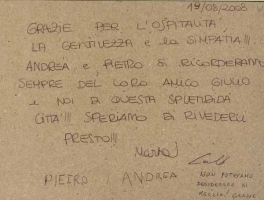 19/08/2008
GRAZIE PER L'OSPITALITÀ
LA GENTILEZZA e la SIMPATIA!!!
ANDREA e PIETRO SI RICORDERANNO
SEMPRE DEL LORO AMICO GIULIO
e NOI DI QUESTA SPLENDIDA
CITA'!!! SPERIAMO DI RIVEDERCI
PRESTO!!!
PIETRO ANDREA
NON POTEVAMO
DESIDERARE DI
MEGLIO! GRAZIE